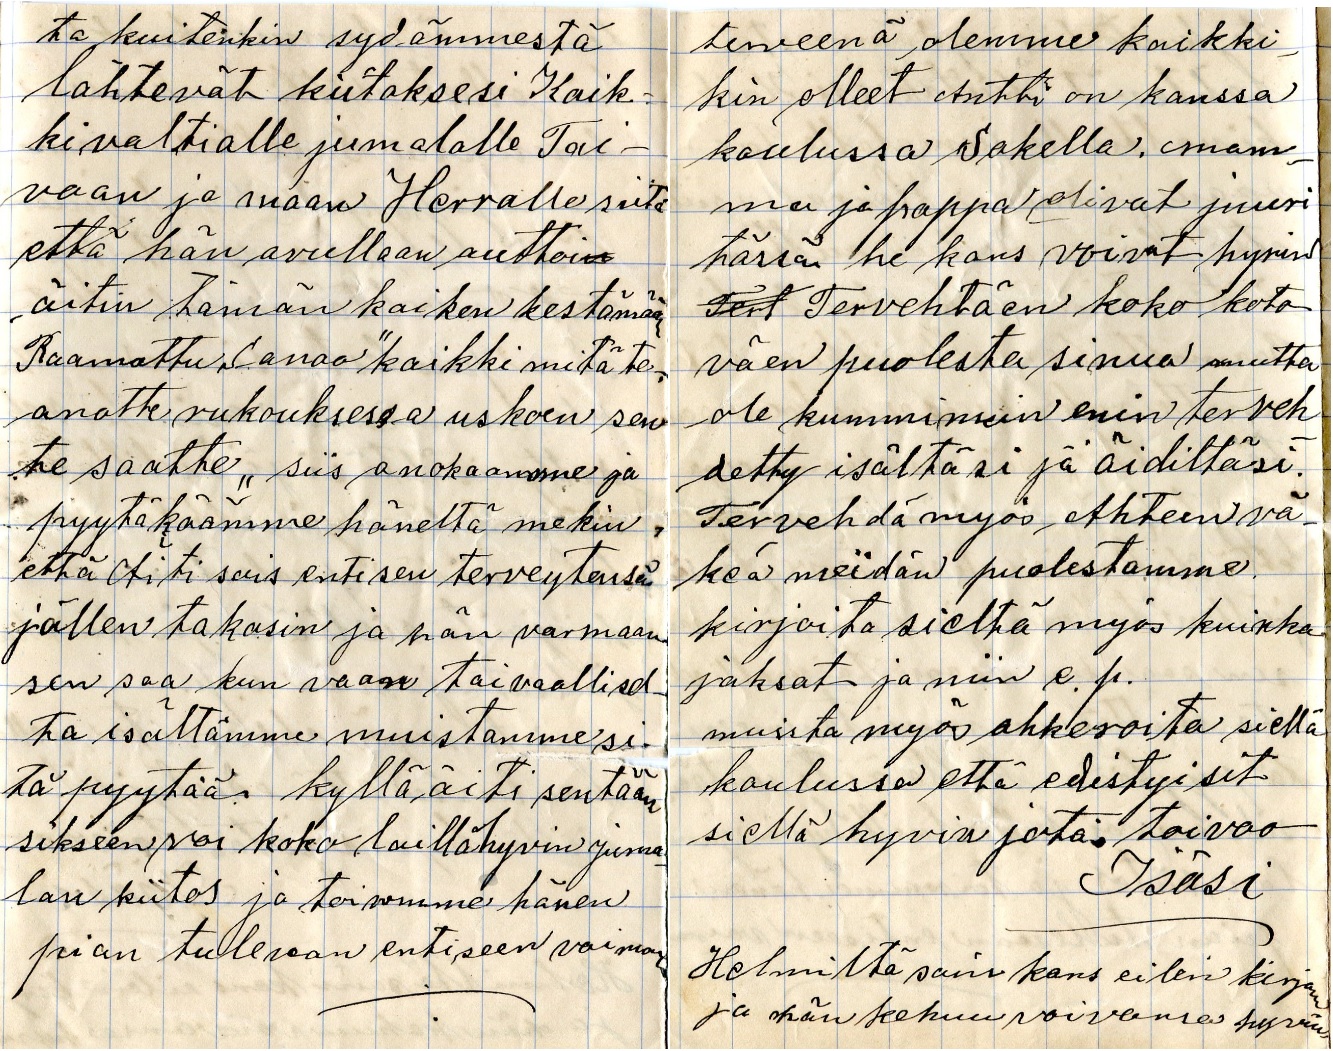 ta kuitenkin sydämmestä
lähtevät kiitoksesi Kaik-
kivaltialle jumalalle Tai-
vaan ja maan Herralle siitä
että hän avullaan auttoi
äitin tämän kaiken kestämään
Raamattu Sanoo "kaikki mitä te
anotte rukouksessa uskoen sen
te saatte" siis anokaamme ja
pyytäkäämme häneltä mekin,
että Äiti sais entisen terveytensä
jällen takasin ja hän varmaan
sen saa kun vaan taivaallisel-
ta isältämme muistamme si-
tä pyytää. kyllä äiti sentään
sikseen voi koko laillahyvin juma
lan kiitos ja toivomme hänen
pian tulevan entiseen voiman
terveenä olemme kaikki
kin olleet Antti on kanssa
koulussa Sakella. mam-
ma ja pappa olivat juuri
tässä he kans voivat hyvin
Tert Tervehtäen koko koto
väen puolesta sinua mutta
ole kumminkin enin terveh
detty isältäsi jä äidiltäsi.
Tervehdä myös Ahteen vä-
keä meidän puolestamme.
kirjoita sieltä myös kuinka
jaksat ja niin e. p.
muista myös ahkeroita siellä
koulussa että edistyisit
siellä hyvin jotä toivoo
Isäsi
Helmiltä sain kans eilen kirjan
ja hän kehuu voivansa hyvin